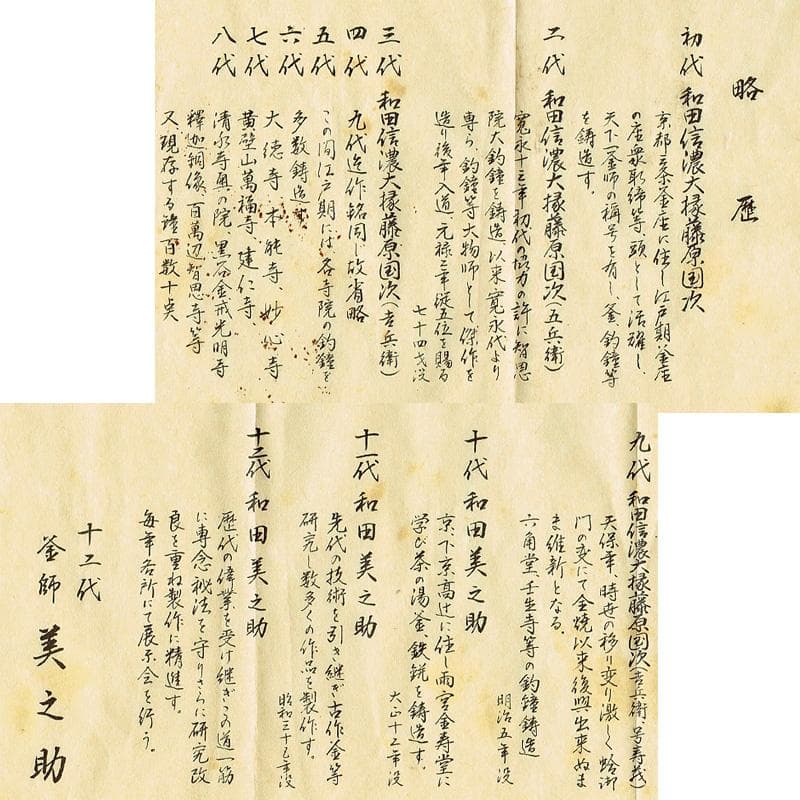 略歴
初代 和田信濃大掾藤原国次
京都三条釜座に住し江戸期釜座
の座衆取締等、頭として活躍し、
天下一釜師の称号を有し、釜、釣鐘等
を鋳造す。
二代 和田信濃大掾藤原国次(五兵衛)
寛永十三年初代の協力の許に智恩
院大釣鐘を鋳造、以来寛永代より
専ら、釣鐘等大物師として傑作を
造り後年入道、元禄三年従五位を賜る
七十四才没
三代 和田信濃大掾藤原国次(吉兵衛)
四代 九代迄作銘同じ故省略
五代 この間江戸期には各寺院の釣鐘を
六代 多数鋳造す
七代 大徳寺、本能寺、妙心寺
八代 黄壁山萬福寺、建仁寺、
清水寺奥の院、黒谷金戒光明寺
釋迦銅像、百萬辺智恩寺等
又、現存する鐘百数十点
九代 和田信濃大掾藤原国次(吉兵衛、号寿義)
天保年、時世の移り変り激しく蛤御
門の変にて全焼以来復興出来ぬま
ま維新となる。
六角堂、壬生寺等の釣鐘鋳造
明治五年没
十代 和田美之助
京、下京高辻に住し雨宮金寿堂に
学び茶の湯釜、鉄鋭を鋳造す。
大正十二年没
十一代 和田美之助
先代の技術を引き継ぎ古作釜等
研究し数多くの作品を製作す。
昭和三十五年没
十二代 和田美之助
歴代の偉業を受け継ぎこの道一筋
に専念秘法を守りさらに研究改
良を重ね製作に精進す。
毎年各所にて展示会を行う。
十二代
釜師 美之助